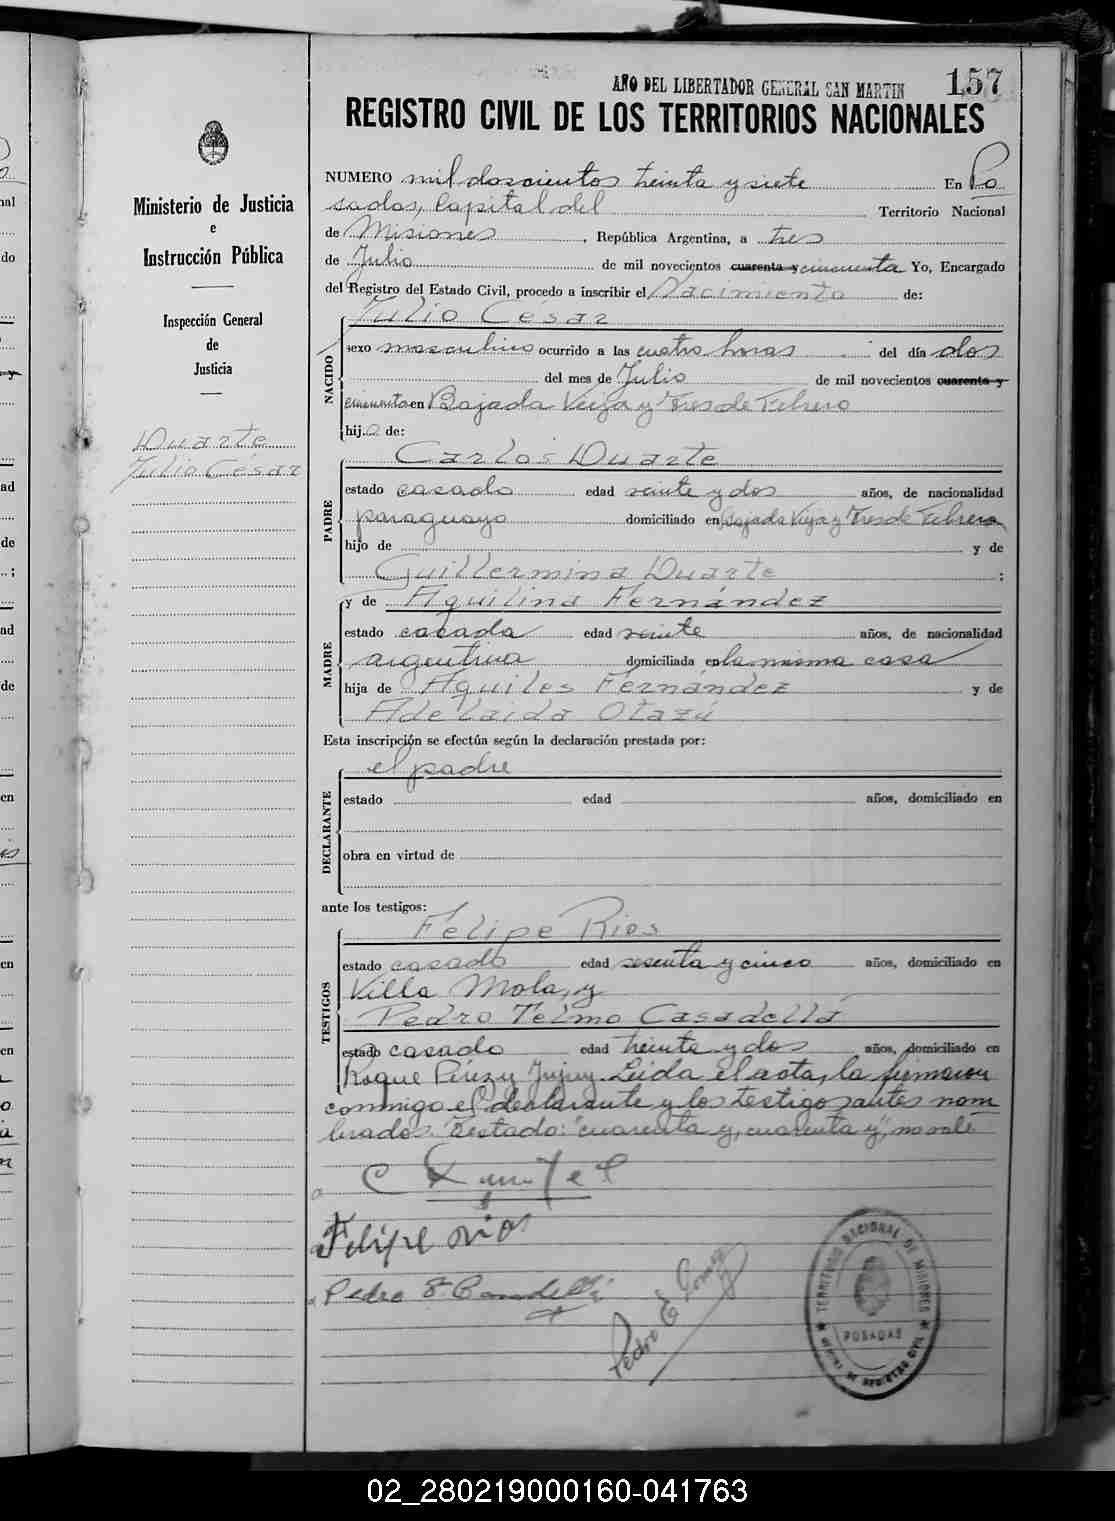 AÑO DEL LIBERTADOR GENERAL SAN MARTIN
157
REGISTRO CIVIL DE LOS TERRITORIOS NACIONALES
Ministerio de Justicia
e
Instrucción Pública
Inspección General
de
Justicia
Duarte
Julio César
NUMERO mil doscientos treinta y siete En Po
sadas, Capital del Territorio Nacional
de Misiones, República Argentina, a tres
de Julio de mil novecientos cuarenta y cincuenta Yo, Encargado
del Registro del Estado Civil, procedo a inscribir el Nacimiento de:
NACIDO
Julio César
sexo masculino ocurrido a las cuatro horas del día dos
del mes de Julio de mil novecientos cuarenta y
cincuenta en Bajada Vieja y Tres de Febrero
hijo de:
PADRE
Carlos Duarte
estado casado edad veinte y dos años, de nacionalidad
paraguayo domiciliado en Bajada Vieja y Tres de Febrero
hijo de y de
Guillermina Duarte ;
MADRE
y de Aquilina Fernández
estado casada edad veinte años, de nacionalidad
argentina domiciliada en la misma casa
hija de Aquiles Fernández y de
Adelaida Otazú
Esta inscripción se efectúa según la declaración prestada por:
DECLARANTE
el padre
estado edad años, domiciliado en
obra en virtud de
ante los testigos:
TESTIGOS
Felipe Rios
estado casado edad sesenta y cinco años, domiciliado en
Villa Mola, y
Pedro Telmo Casadella
estado casado edad treinta y dos años, domiciliado en
Roque Pérez y Jujuy. Leida el acta, la firmaron
conmigo el declarante y los testigos antes nom
brados. Testado: "cuarenta y, cuarenta y", no vale
Felipe rios
Pedro
Pedro E Gomez
TERRITORIO NACIONAL DE MISIONES
POSADAS
DE REGISTRO CIVIL
02_280219000160-041763